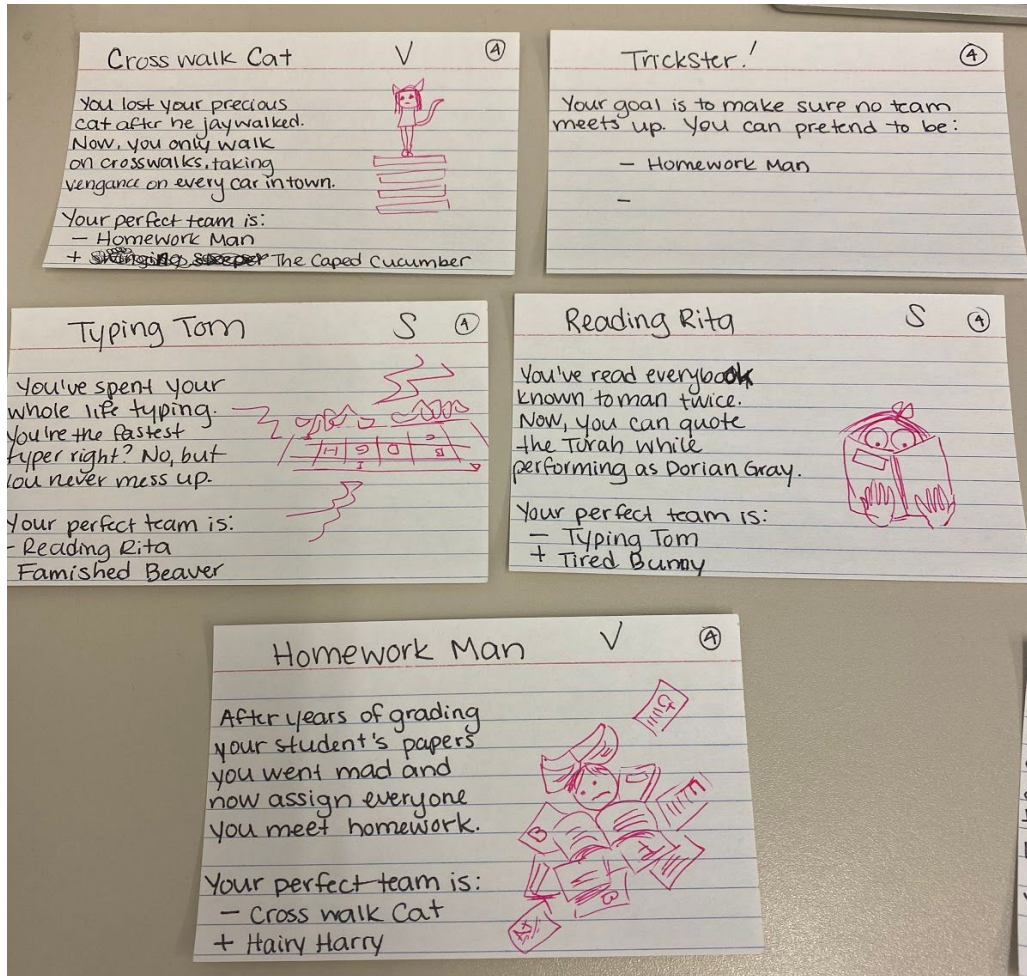 Cross walk Cat V 4
You lost your precious
cat after he jaywalked.
Now, you only walk
on crosswalks, taking
vengance on every car in town.
Your perfect team is:
- Homework Man
+ The Caped Cucumber
Trickster! 4
Your goal is to make sure no team
meets up. You can pretend to be:
- Homework Man
-
Typing Tom S 4
You've spent your
whole life typing.
You're the fastest
typer right? No, but
you never mess up.
Your perfect team is:
- Reading Rita
Famished Beaver
Reading Rita S 4
You've read everybook
known to man twice.
Now, you can quote
the Torah while
performing as Dorian Gray.
Your perfect team is:
- Typing Tom
+ Tired Bunny
Homework Man V 4
After years of grading
your student's papers
you went mad and
now assign everyone
you meet homework.
Your perfect team is:
- Cross walk Cat
+ Hairy Harry